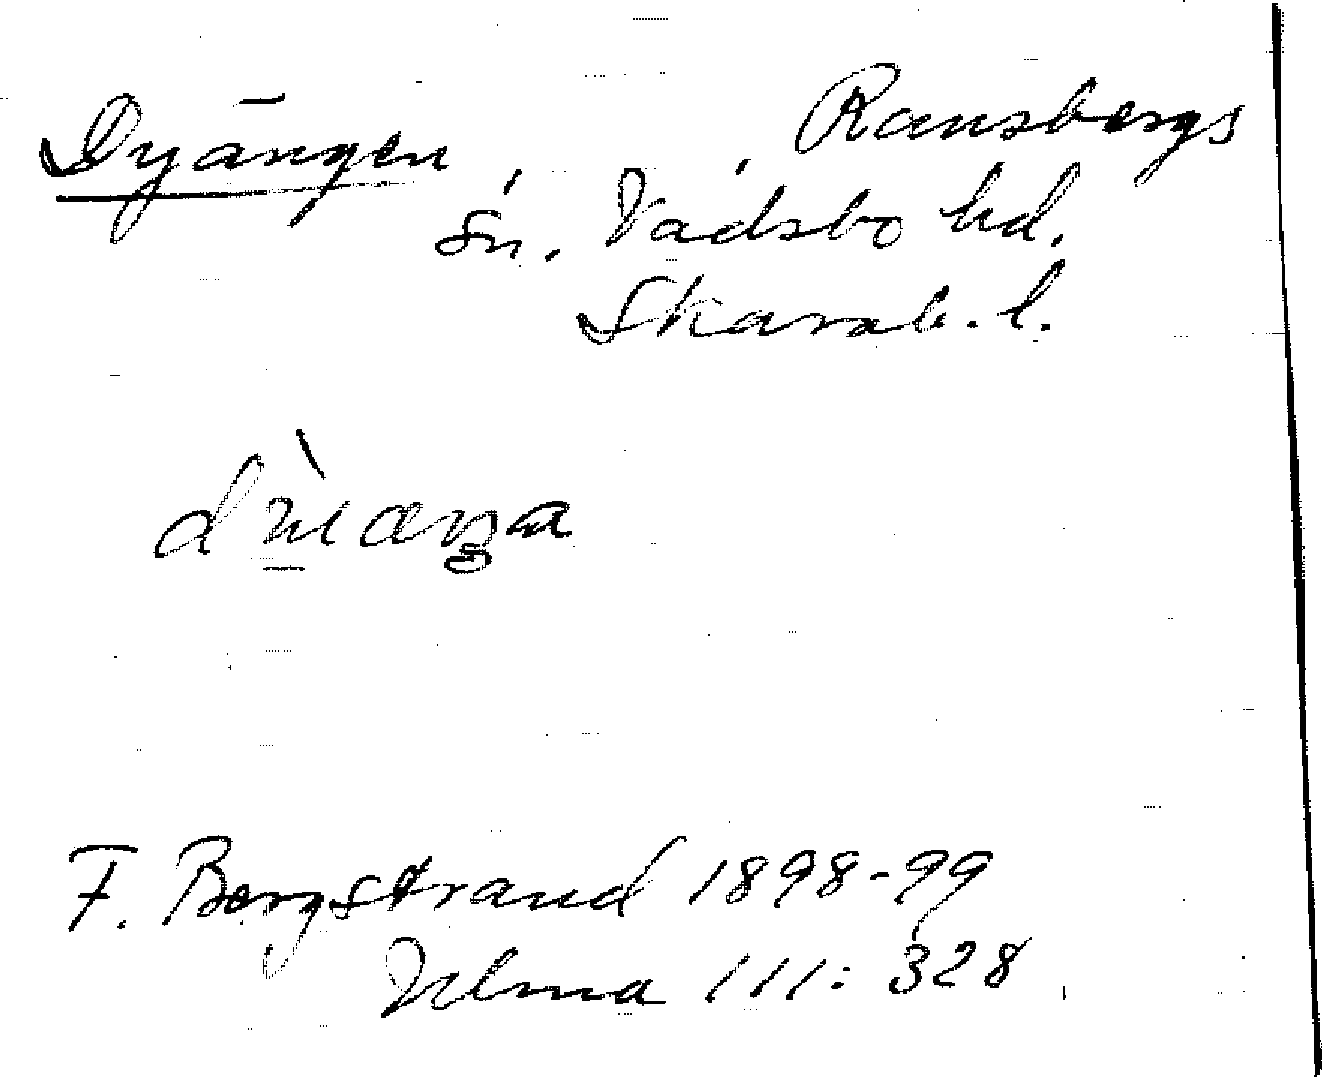 Dyängen, Ransbergs
sn. Vadsbo hd.
Skarab. l.
F. Bergstrand 1898-99
Ulma 111: 328